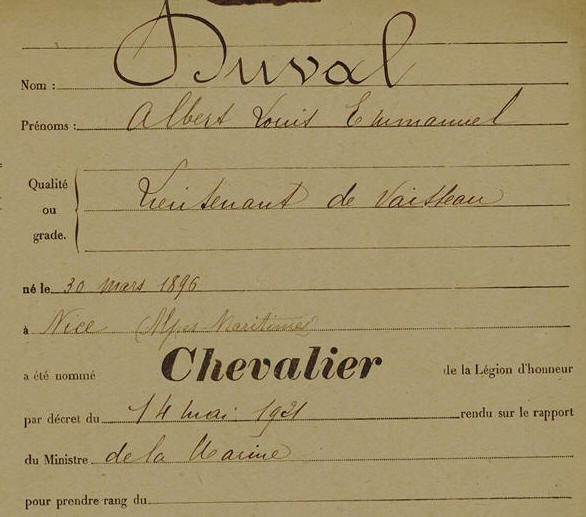 Nom : Duval
Prénoms : Albert Louis Emmanuel
Qualité
ou
grade.
Lieutenant de Vaisseau
né le 30 mars 1896
à Nice (Alpes-Maritimes)
a été nommé Chevalier de la Légion d'honneur
par décret du 14 mai 1921 rendu sur le rapport
du Ministre de la Marine
pour prendre rang du